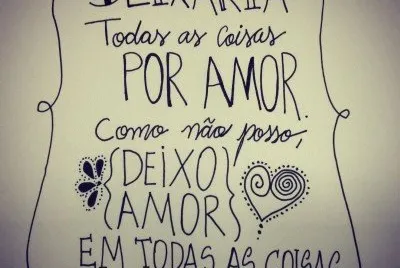 DEIXARIA
Todas as coisas
POR AMOR.
Como não posso,
{DEIXO}
{AMOR}
EM TODAS AS COISAS